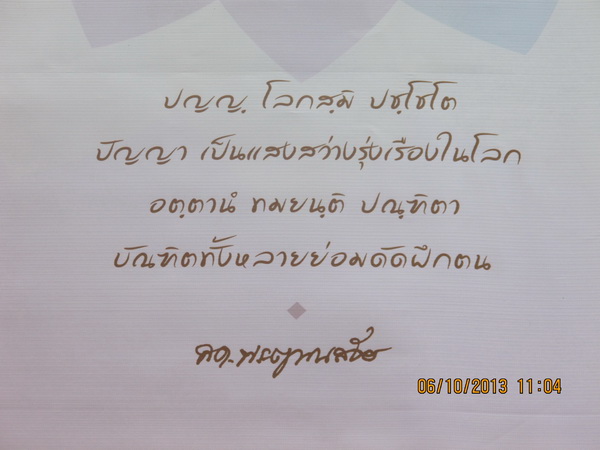 ปญฺญา โลกสฺมิ ปชฺโชโต
ปัญญา เป็นแสงสว่างรุ่งเรืองในโลก
อตฺตานํ ทมยนฺติ ปณฺฑิตา
บัณฑิตทั้งหลายย่อมดัดฝึกตน
06/10/2013 11:04